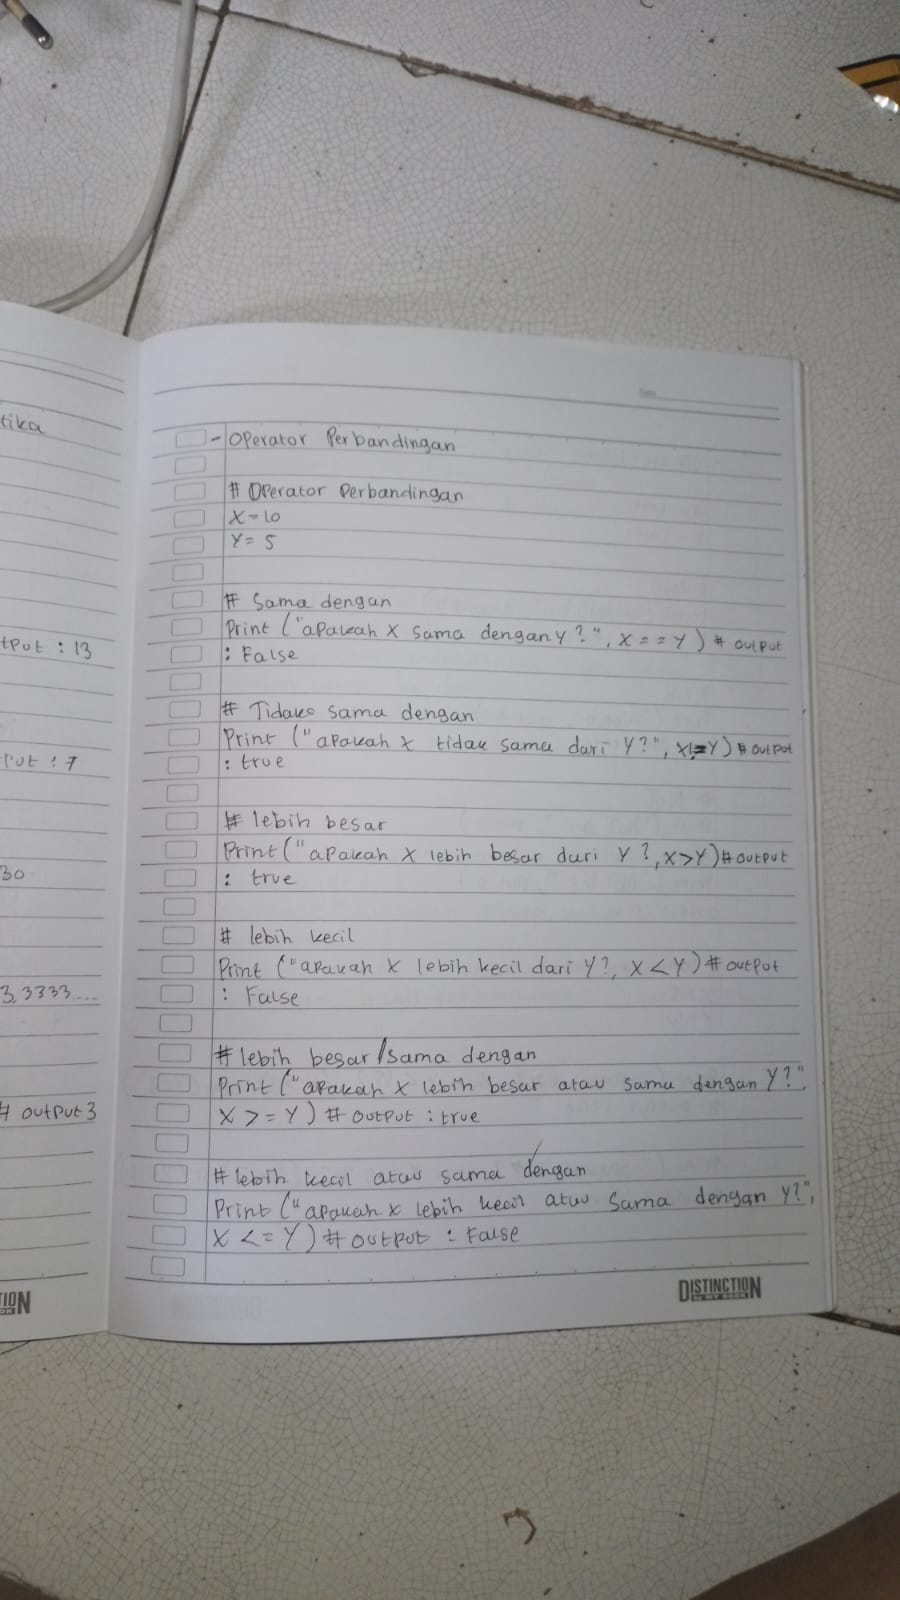 tika
tput : 13
put : 7
30
3,3333....
# output 3
- Operator Perbandingan
# Operator Perbandingan
X = 10
Y = 5
# Sama dengan
Print ("apakah X sama dengan Y ?", X == Y) # output
: False
# Tidak sama dengan
Print ("apakah X tidak sama dari Y?", X!=Y) # output
: true
# lebih besar
Print ("apakah X lebih besar dari Y ?, X>Y) # output
: true
# lebih kecil
Print ("apakah X lebih kecil dari Y?, X < Y) # output
: False
# lebih besar/sama dengan
Print ("apakah X lebih besar atau sama dengan Y?",
X >= Y) # output : true
# lebih kecil atau sama dengan
Print ("apakah X lebih kecil atau sama dengan Y?",
X <= Y) # output : False
DISTINCTION
TION